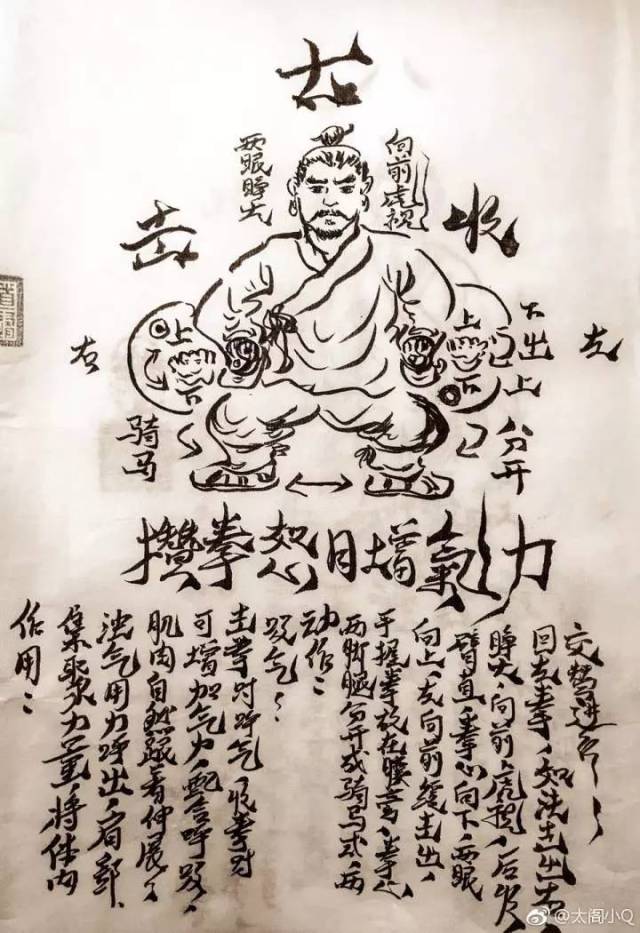 两眼睁大
向前虎视
击
收
右
左
上
上
下出上
骑马
分开
攢拳怒目增氣力
作用：
集聚力量，将体内
浊气用力呼出，肩部、
肌肉自然跟着伸展，
可增加气力，配合呼吸，
击拳时呼气，收拳时
吸气。
动作：
两脚腿分开成骑马式，两
手握拳放在腰旁，拳心
向上，左向前缓击出，
臂直，拳心向下，两眼
睁大，向前虎视，后收
回左拳，如法击出右
交替进行。
@太阁小Q